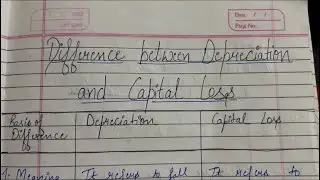 Date / /
Page No.
Difference between Depreciation
and Capital Loss
Basis of Difference | Depreciation | Capital Loss
1. Meaning | It refers to fall | It refers to